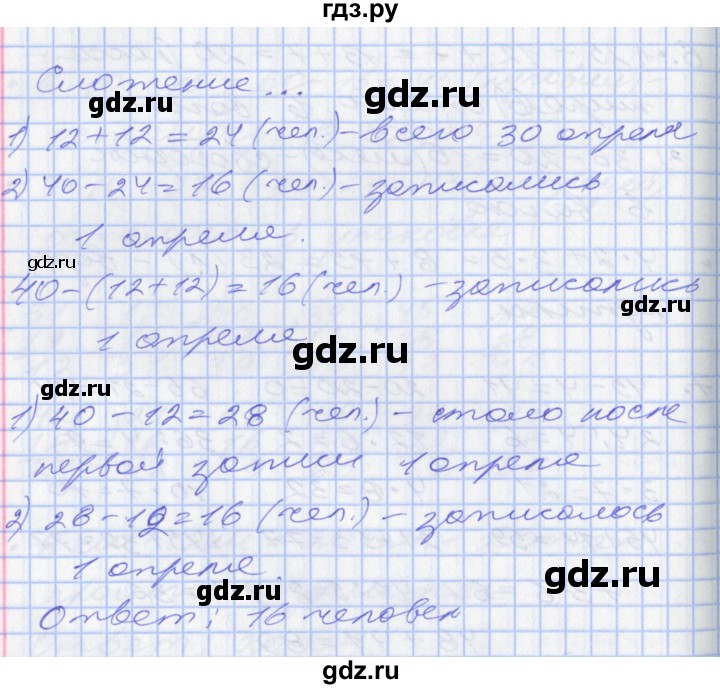 гдз.ру
Сложение...
gdz.ru
gdz.ru
1) 12+12=24 (чел.) – всего 30 апреля
2) 40-24=16 (чел.) – записались
1 апреля.
gdz.ru
40-(12+12)=16 (чел.) – записались
gdz.ru
1 апреля
gdz.ru
gdz.ru
1) 40-12=28 (чел.) – стало после
первой записи 1 апреля
gdz.ru
2) 28-12=16 (чел.) – записалось
1 апреля.
gdz.ru
gdz.ru
Ответ: 16 человек
gdz.ru